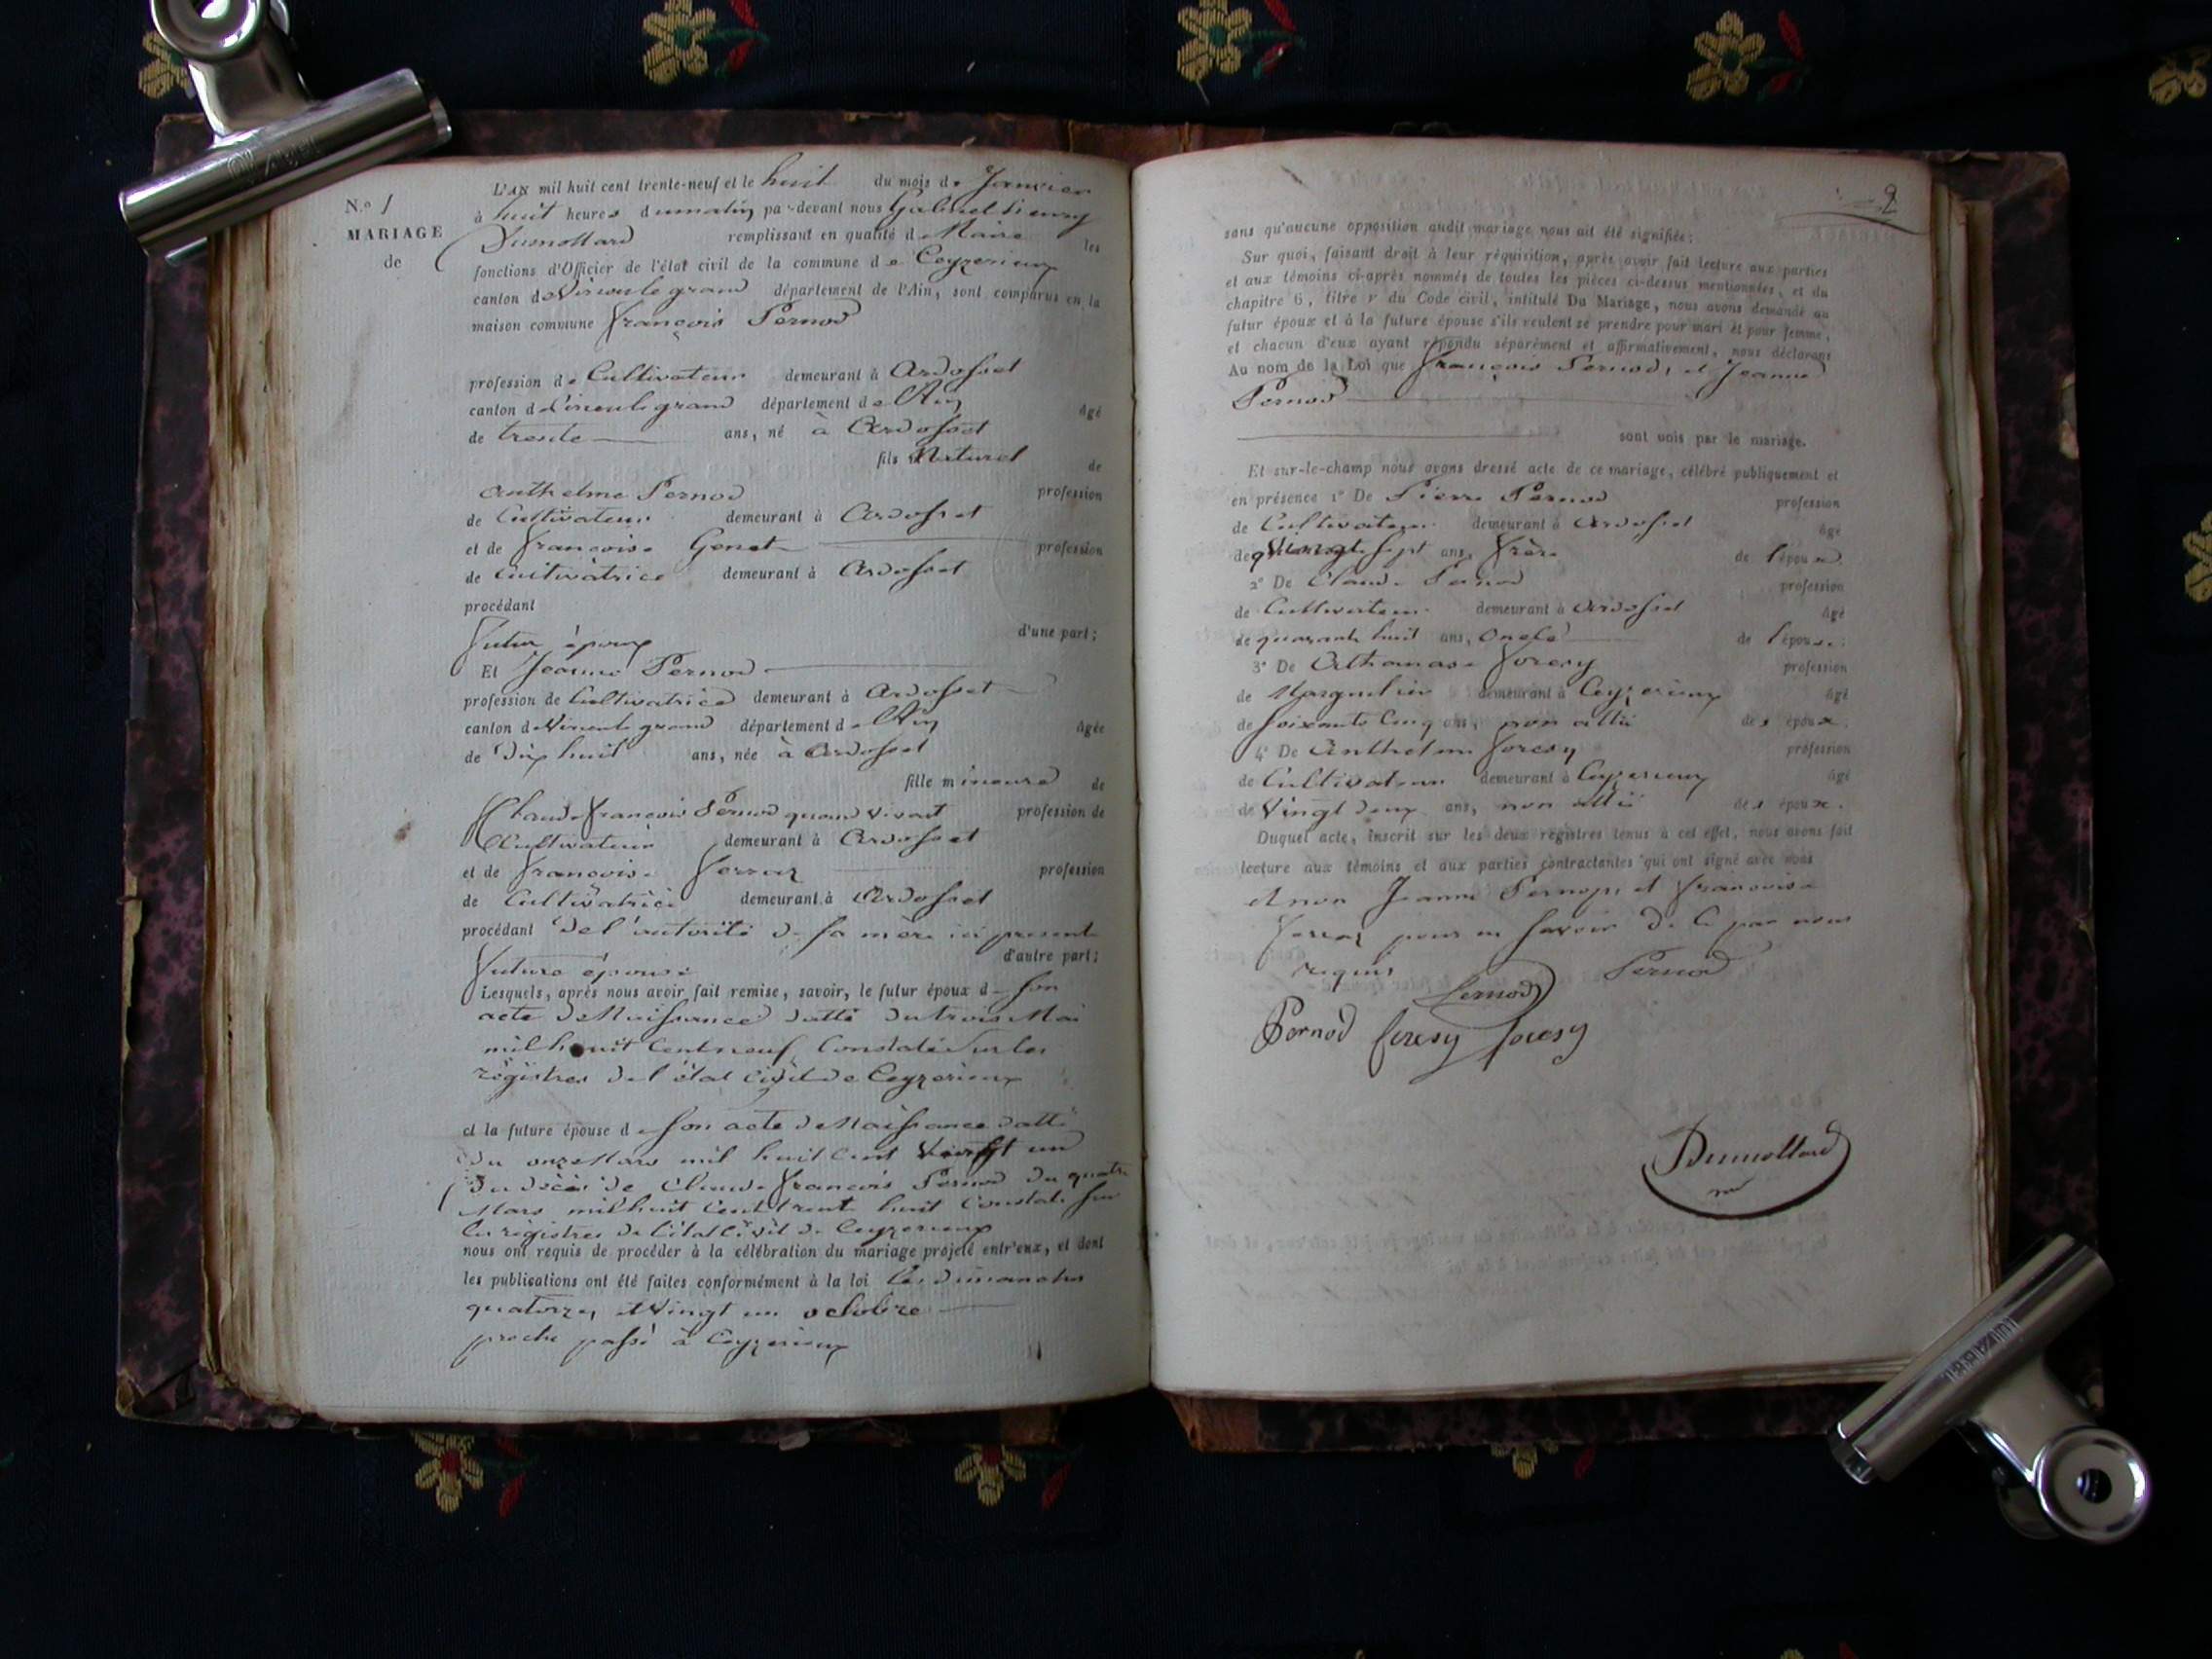 N.o 1
MARIAGE
de
L'AN mil huit cent trente-neuf et le huit du mois de Janvier
à huit heures du matin par-devant nous Gabriel henry
Dumollard remplissant en qualité de Maire les
fonctions d'Officier de l'état civil de la commune de Ceyzerieux
canton de Virieu le grand département de l'Ain, sont comparus en la
maison commune françois Pernod
profession de Cultivateur demeurant à Ardosset
canton de Virieu le grand département de l'Ain âgé
de trente ans, né à Ardosset
fils Naturel de
Anthelme Pernod profession
de Cultivateur demeurant à Ardosset
et de françoise Genet profession
de Cultivatrice demeurant à Ardosset
procédant
futur époux d'une part;
Et Jeanne Pernod
profession de Cultivatrice demeurant à Ardosset
canton de Virieu le grand département de l'Ain âgée
de dix huit ans, née à Ardosset
fille mineure de
Claude françois Pernod quand vivait profession de
Cultivateur demeurant à Ardosset
et de françoise ferraz profession
de Cultivatrice demeurant à Ardosset
procédant de l'autorité de sa mère ici présente
future épouse d'autre part;
Lesquels, après nous avoir fait remise, savoir, le futur époux de son
acte de Naissance datté du trois Mai
mil huit Cent neuf Constaté Sur les
régistres de l'état civil de Ceyzerieux
et la future épouse de son acte de Naissance datté
du onze Mars mil huit Cent Vingt un
du décès de Claude françois Pernod du quatre
Mars mil huit Cent trente huit Constaté sur
les régistres de l'état Civil de Ceyzerieux
nous ont requis de procéder à la célébration du mariage projeté entr'eux, et dont
les publications ont été faites conformément à la loi les dimanches
quatorze, et Vingt un octobre
proche passé à Ceyzerieux
2
sans qu'aucune opposition audit mariage nous ait été signifiée;
Sur quoi, faisant droit à leur réquisition, après avoir fait lecture aux parties
et aux témoins ci-après nommés de toutes les pièces ci-dessus mentionnées, et du
chapitre 6, titre v du Code civil, intitulé Du Mariage, nous avons demandé au
futur époux et à la future épouse s'ils veulent se prendre pour mari et pour femme,
et chacun d'eux ayant répondu séparément et affirmativement, nous déclarons
Au nom de la Loi que françois Pernod, et Jeanne
Pernod
sont unis par le mariage.
Et sur-le-champ nous avons dressé acte de ce mariage, célébré publiquement et
en présence 1º De Pierre Pernod profession
de Cultivateur demeurant à Ardosset âgé
de Vingt Sept ans, frère de l'époux
2º De Claude Pernod profession
de Cultivateur demeurant à Ardosset âgé
de quarante huit ans, oncle de l'épouse.
3º De Athanase foresy profession
de demeurant à Ceyzerieux âgé
de soixante Cinq ans, non allié des époux.
4º De Anthelme foresy profession
de Cultivateur demeurant à Ceyzerieux âgé
de Vingt deux ans, non allié des époux.
Duquel acte, inscrit sur les deux registres tenus à cet effet, nous avons fait
lecture aux témoins et aux parties contractantes qui ont signé avec nous
et non Jeanne Pernod, et françoise
ferraz pour ne savoir de ce par nous
requis
Pernod Pernod
Pernod foresy foresy
Dumollard